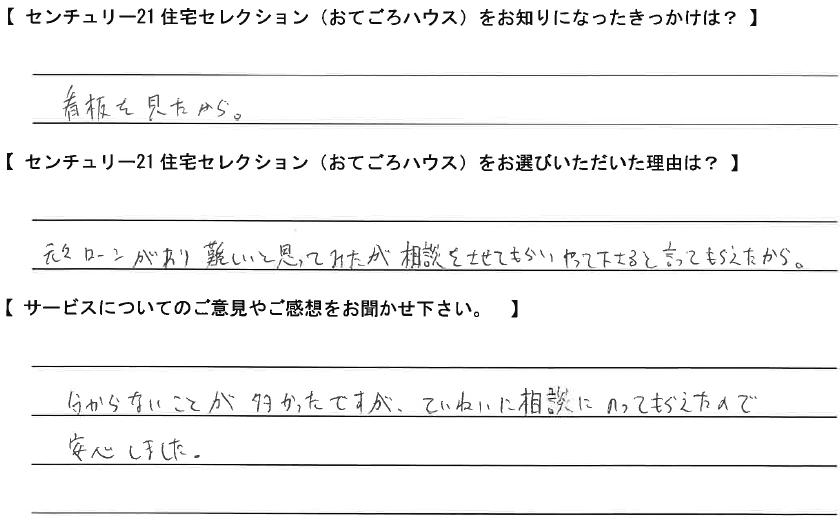 【 センチュリー21 住宅セレクション（おてごろハウス）をお知りになったきっかけは？ 】
看板を見たから。
【 センチュリー21 住宅セレクション（おてごろハウス）をお選びいただいた理由は？ 】
元々ローンがあり難しいと思っていたが相談をさせてもらいやって下さると言ってもらえたから。
【 サービスについてのご意見やご感想をお聞かせ下さい。 】
分からないことが多かったですが、ていねいに相談にのってもらえたので
安心しました。